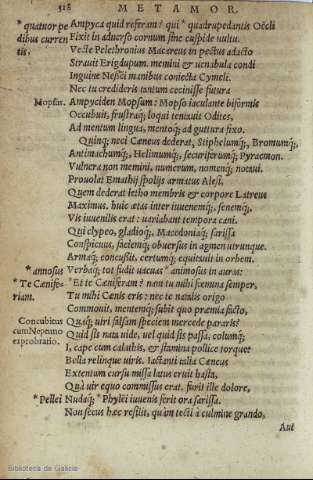 518 METAMOR.
* quatuor pe Ampyca quid referam? qui * quadrupedantis Oecli
dibus curren Fixit in aduerso cornum sine cuspide uultu.
tis. Vecte Pelethronius Macareus in pectus adacto
Strauit Erigdupum. memini & uenabula condi
Inguine Nesseis manibus coniecta Cymeli.
Nec tu credideris tantum cecinisse futura
Mopsū. Ampyciden Mopsum: Mopso iaculante biformis
Occubuit, frustraq́; loqui tentauit Odites,
Ad mentum lingua, mentoq́; ad guttura fixo.
Quinq; neci Cæneus dederat, Stiphelumq́;, Bromumq́;,
Antimachumq́;, Helimumq́;, securiferumq́; Pyracmon.
Vulnera non memini, numerum, nomenq́; notaui.
Prouolat Emathij spolijs armatus Alesi,
Quem dederat letho membris & corpore Latreus
Maximus. huic ætas inter iuuenemq́;, senemq́;,
Vis iuuenilis erat: uariabant tempora cani.
Qui clypeo, gladioq́;, Macedoniaq́; sarissa
Conspicuus, faciemq́; obuersus in agmen utrunque.
Armaq́; concußit, certumq́; equitauit in orbem.
* annosus Verbaq́; tot fudit uacuas * animosus in auras:
* Te Cænise- * Et te Cæniseram? nam tu mihi fœmina semper,
riam. Tu mihi Cænis eris: nec te natalis origo
Commonuit, mentemq́; subit quo præmia facto,
Concubitus Quaq́; uiri falsam speciem mercede pararis?
cum Neptuno Quid sis nata uide, uel quid sis passa, columq́;
exprobratio. I, cape cum calathis, & stamina pollice torque:
Bella relinque uiris. Iactanti talia Cæneus
Extentum cursu missa latus eruit hasta,
Quà uir equo commissus erat. furit ille dolore,
* Pellei Nudaq́; * Phylëi iuuenis ferit ora sarissa.
Non secus hæc resilit, quàm tecti à culmine grando,
Aut
Biblioteca de Galicia